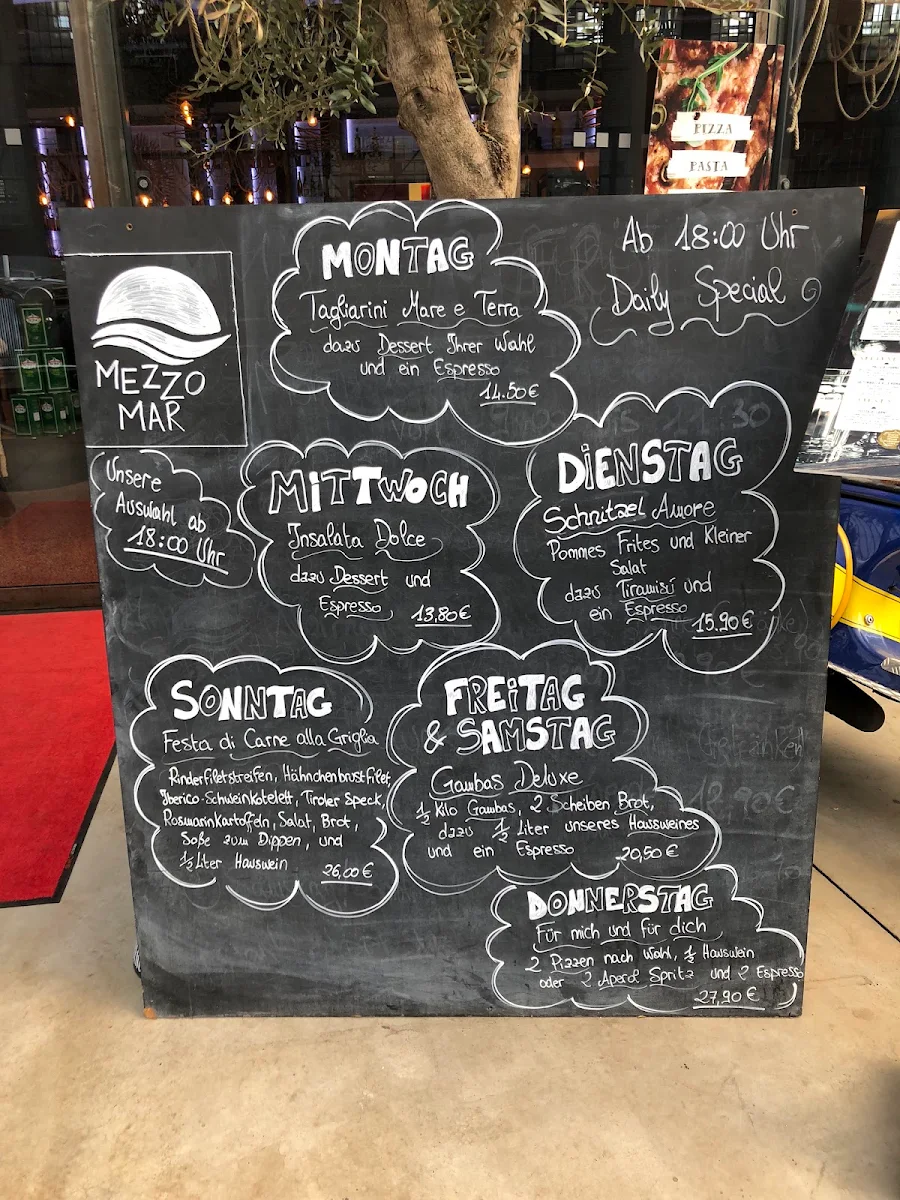 PIZZA
PASTA
Ab 18:00 Uhr
Daily Special
MEZZO
MAR
Unsere
Auswahl ab
18:00 Uhr
MONTAG
Tagliarini Mare e Terra
dazu Dessert Ihrer Wahl
und ein Espresso
14.50€
DiENSTAG
Schnitzel Amore
Pommes Frites und Kleiner
Salat
dazu Tiramisú und
ein Espresso
15.90€
MiTTWOCH
Insalata Dolce
dazu Dessert und
Espresso
13,80€
SONNTAG
Festa di Carne alla Griglia
Rinderfiletstreifen, Hähnchenbrustfilet,
Iberico-Schweinkotelett, Tiroler Speck,
Rosmarinkartoffeln, Salat, Brot,
Soße zum Dippen, und
½ Liter Hauswein
26,00€
FREiTAG
& SAMSTAG
Gambas Deluxe
½ Kilo Gambas, 2 Scheiben Brot,
dazu ½ Liter unseres Haussweines
und ein Espresso
20,50€
DONNERSTAG
Für mich und für dich
2 Pizzen nach Wahl, ½ Hauswein
oder 2 Aperol Spritz und 2 Espresso
27,90€